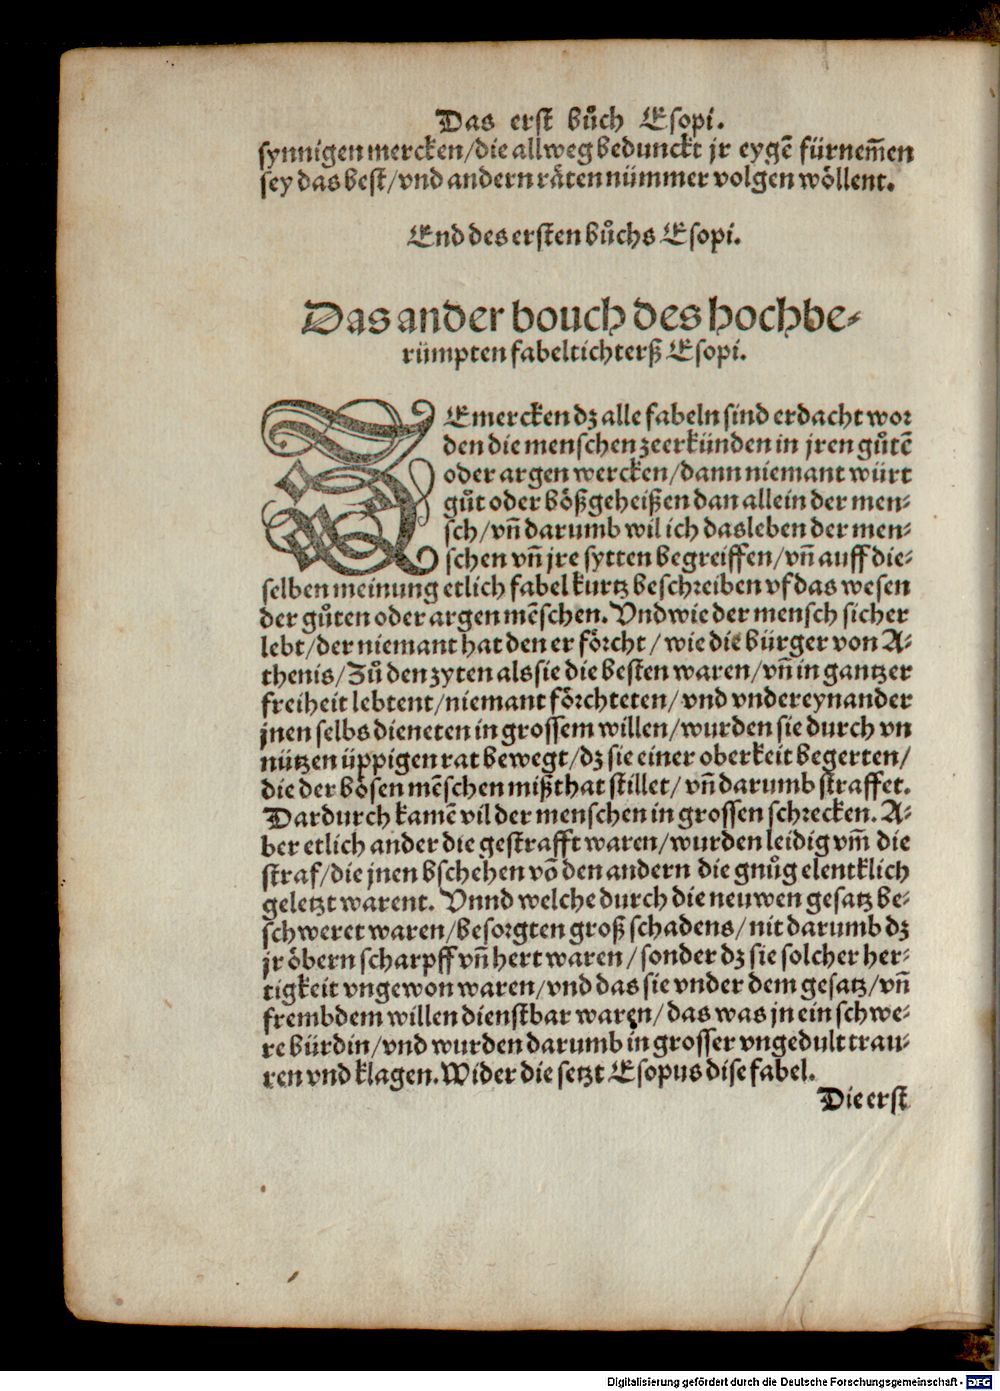 Das erst bůch Esopi.
synnigen mercken/die allweg bedunckt jr eygē fürnem̄en
sey das best/vnd andern räten nümmer volgen wöllent.
End des ersten bůchs Esopi.
Das ander bouch des hochbe⸗
rümpten fabeltichterß Esopi.
BEmercken dz alle fabeln sind erdacht wor
den die menschen zeerkünden in jren gůtē
oder argen wercken/dann niemant würt
gůt oder bößgeheißen dan allein der men⸗
sch/vn̄ darumb wil ich das leben der men⸗
schen vn̄ jre sytten begreiffen/vn̄ auff die⸗
selben meinung etlich fabel kurtz beschreiben vf das wesen
der gůten oder argen mēschen. Vnd wie der mensch sicher
lebt/der niemant hat den er förcht/wie die bürger von A⸗
thenis/Zů den zyten als sie die besten waren/vn̄ in gantzer
freiheit lebtent/niemant förchteten/vnd vndereynander
jnen selbs dieneten in grossem willen/wurden sie durch vn
nützen üppigen rat bewegt/dz sie einer oberkeit begerten/
die der bösen mēschen mißthat stillet/vn̄ darumb straffet.
Dardurch kamē vil der menschen in grossen schrecken. A⸗
ber etlich ander die gestrafft waren/wurden leidig vm̄ die
straf/die jnen bschehen vō den andern die gnůg elentklich
geletzt warent. Vnnd welche durch die neuwen gesatz be⸗
schweret waren/besorgten groß schadens/nit darumb dz
jr öbern scharpff vn̄ hert waren/sonder dz sie solcher her⸗
tigkeit vngewon waren/vnd das sie vnder dem gesatz/vn̄
frembdem willen dienstbar waren/das was jn ein schwe⸗
re bürdin/vnd wurden darumb in grosser vngedult trau⸗
ren vnd klagen. Wider die setzt Esopus dise fabel.
Die erst
Digitalisierung gefördert durch die Deutsche Forschungsgemeinschaft - DFG